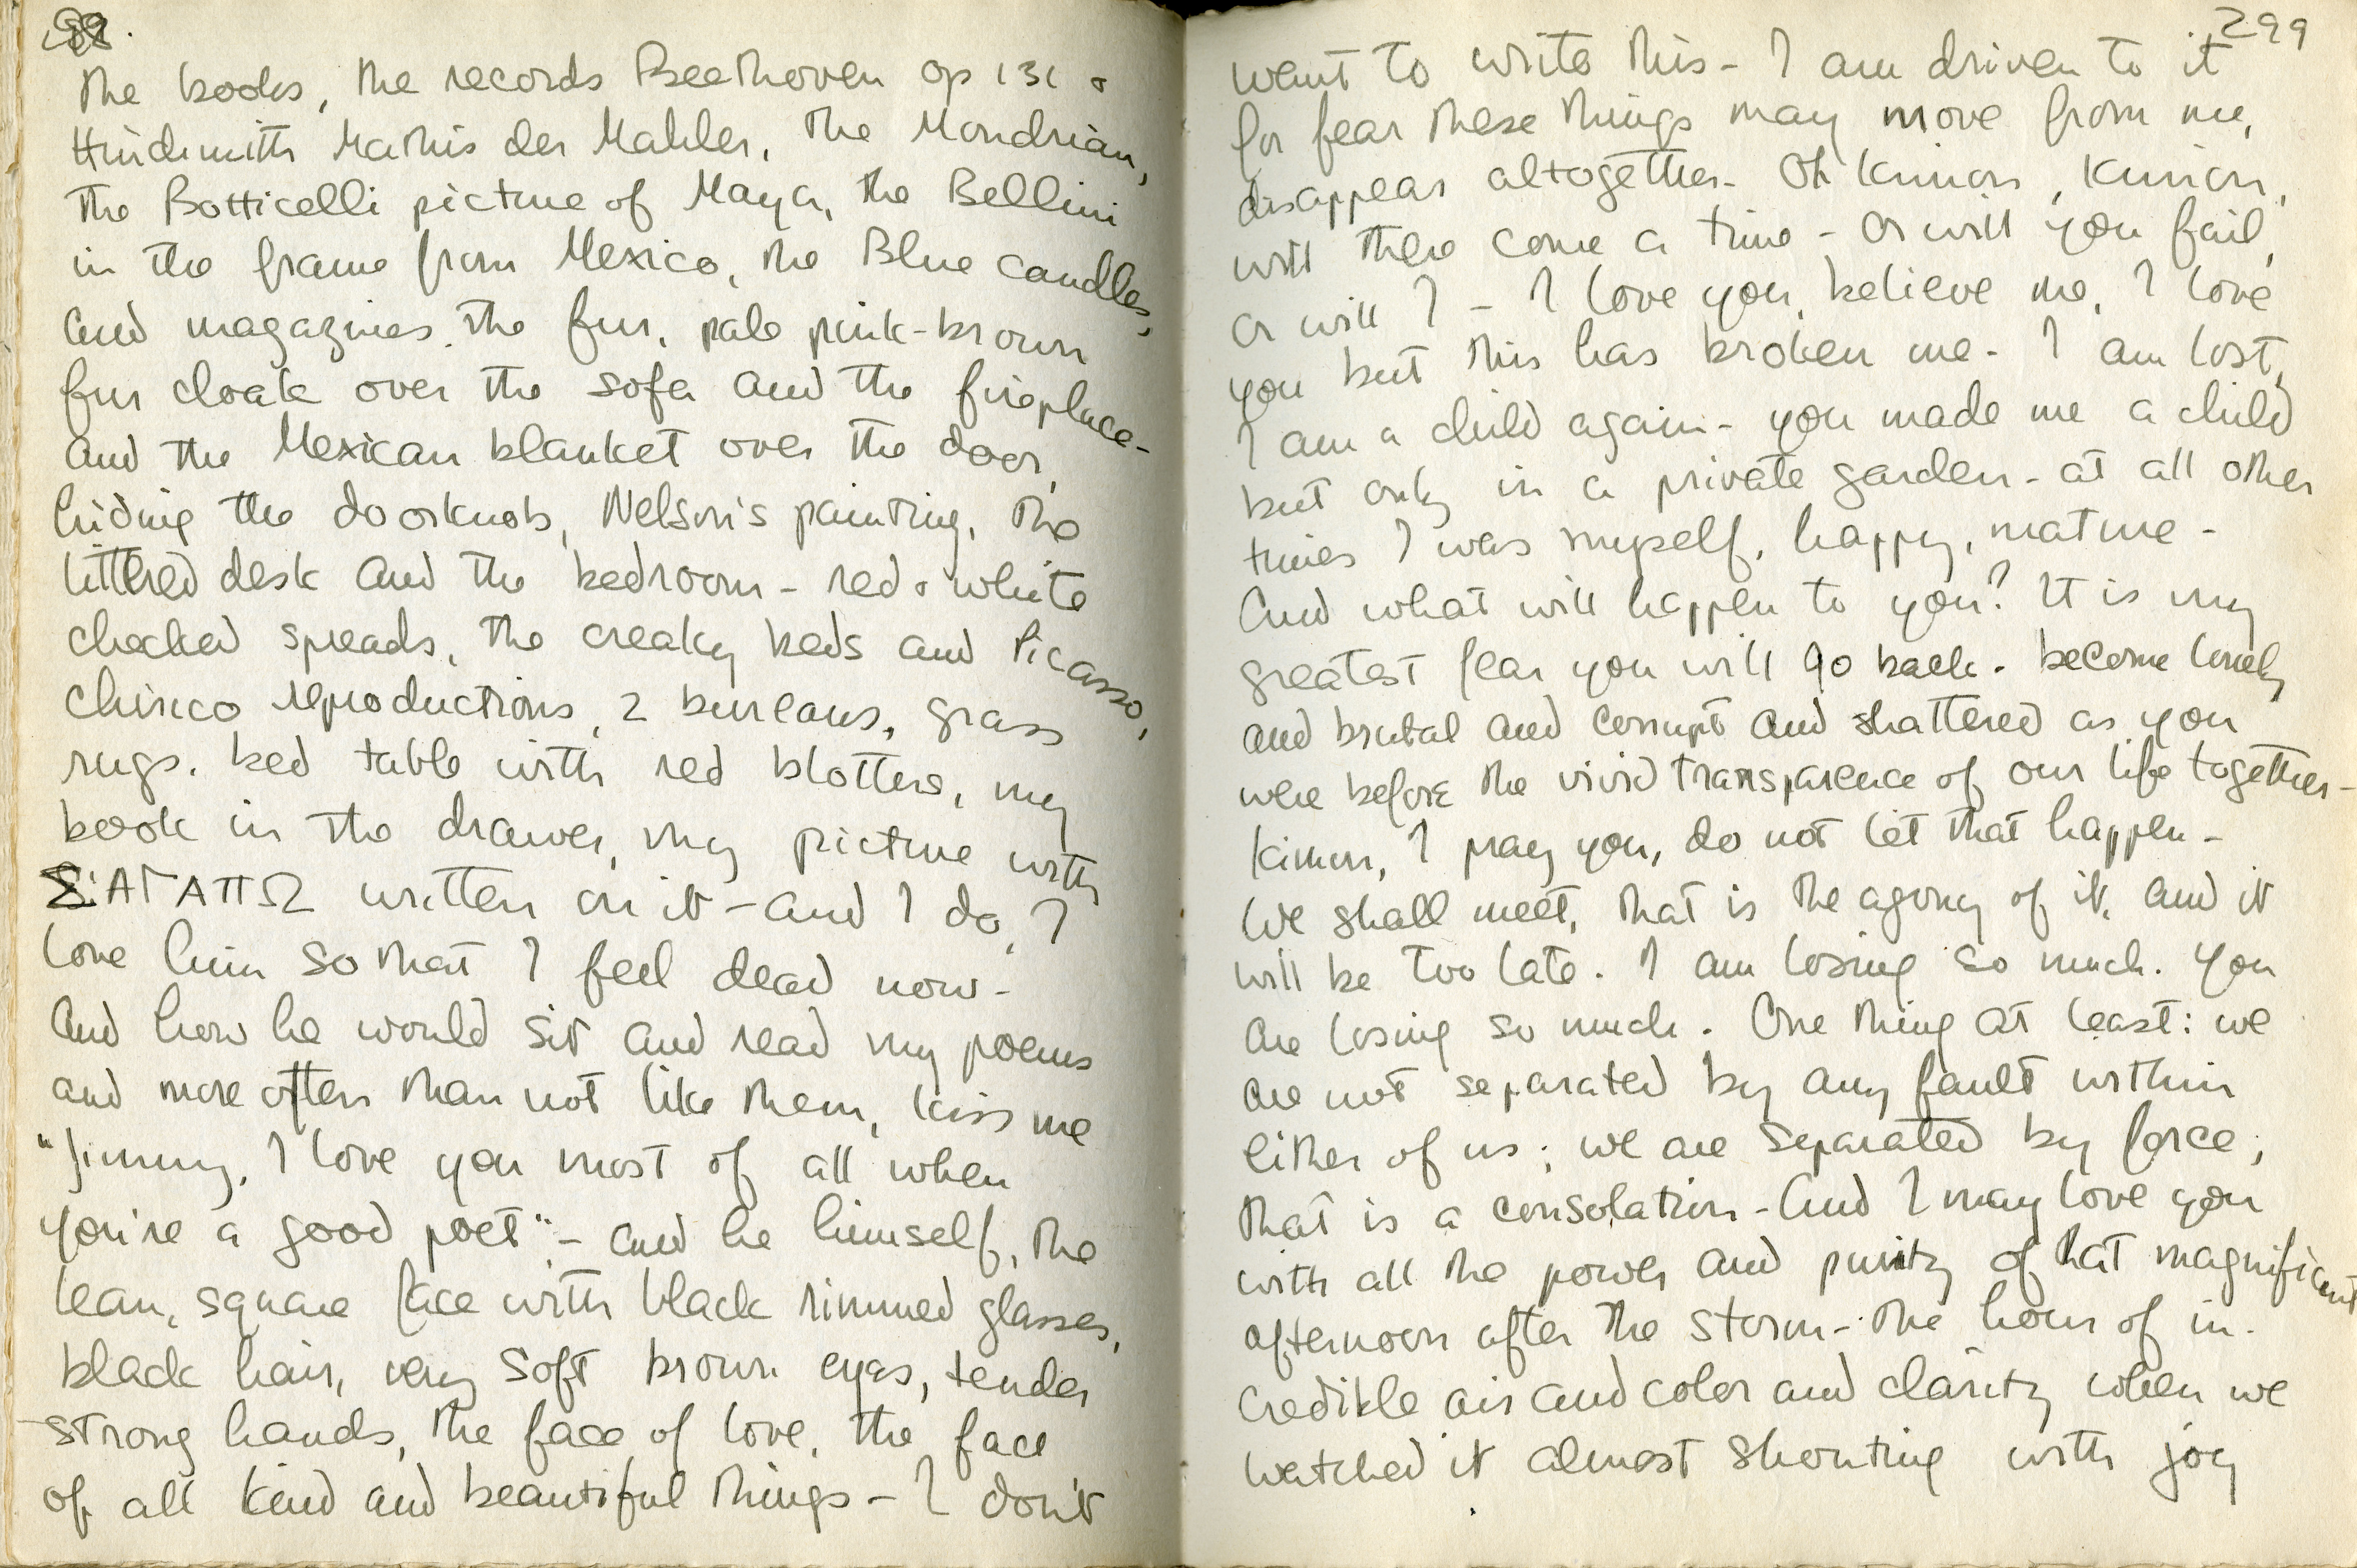 the books, the records Beethoven Op 131 &
Hindemith Mathis der Mahler, the Mondrian,
the Botticelli picture of Maya, the Bellini
in the frame from Mexico, the Blue candles,
and magazines. the fur, pale pink-brown
fur cloak over the sofa and the fireplace-
and the Mexican blanket over the door,
hiding the doorknob, Nelson's painting, the
littered desk and the bedroom - red & white
checked spreads, the creaky beds and Picasso,
Chirico reproductions, 2 bureaus, grass
rugs. bed table with red blotters, my
book in the drawer, my picture with
Σ'ΑΓΑΠΩ written on it - and I do, I
love him so that I feel dead now-
and how he would sit and read my poems
and more often than not like them, kiss me
"Jimmy, I love you most of all when
you're a good poet" - and he himself, the
lean, square face with black rimmed glasses,
black hair, very soft brown eyes, tender
strong hands, the face of love, the face
of all kind and beautiful things - I don't
299
want to write this - I am driven to it
for fear these things may move from me,
disappear altogether - Oh Kimon, Kimon,
will there come a time - or will you fail,
or will I - I love you, believe me, I love
you but this has broken me - I am lost,
I am a child again - you made me a child
but only in a private garden - at all other
times I was myself, happy, mature -
And what will happen to you? It is my
greatest fear you will go back. become lonely
and brutal and corrupt and shattered as you
were before the vivid transparence of our life together -
Kimon, I pray you, do not let that happen -
We shall meet, that is the agony of it, and it
will be too late. I am losing so much. You
are losing so much. One thing at least: we
are not separated by any fault within
either of us; we are separated by force;
that is a consolation - And I may love you
with all the power and purity of that magnificent
afternoon after the storm - the hour of in-
credible air and color and clarity when we
watched it almost shouting with joy